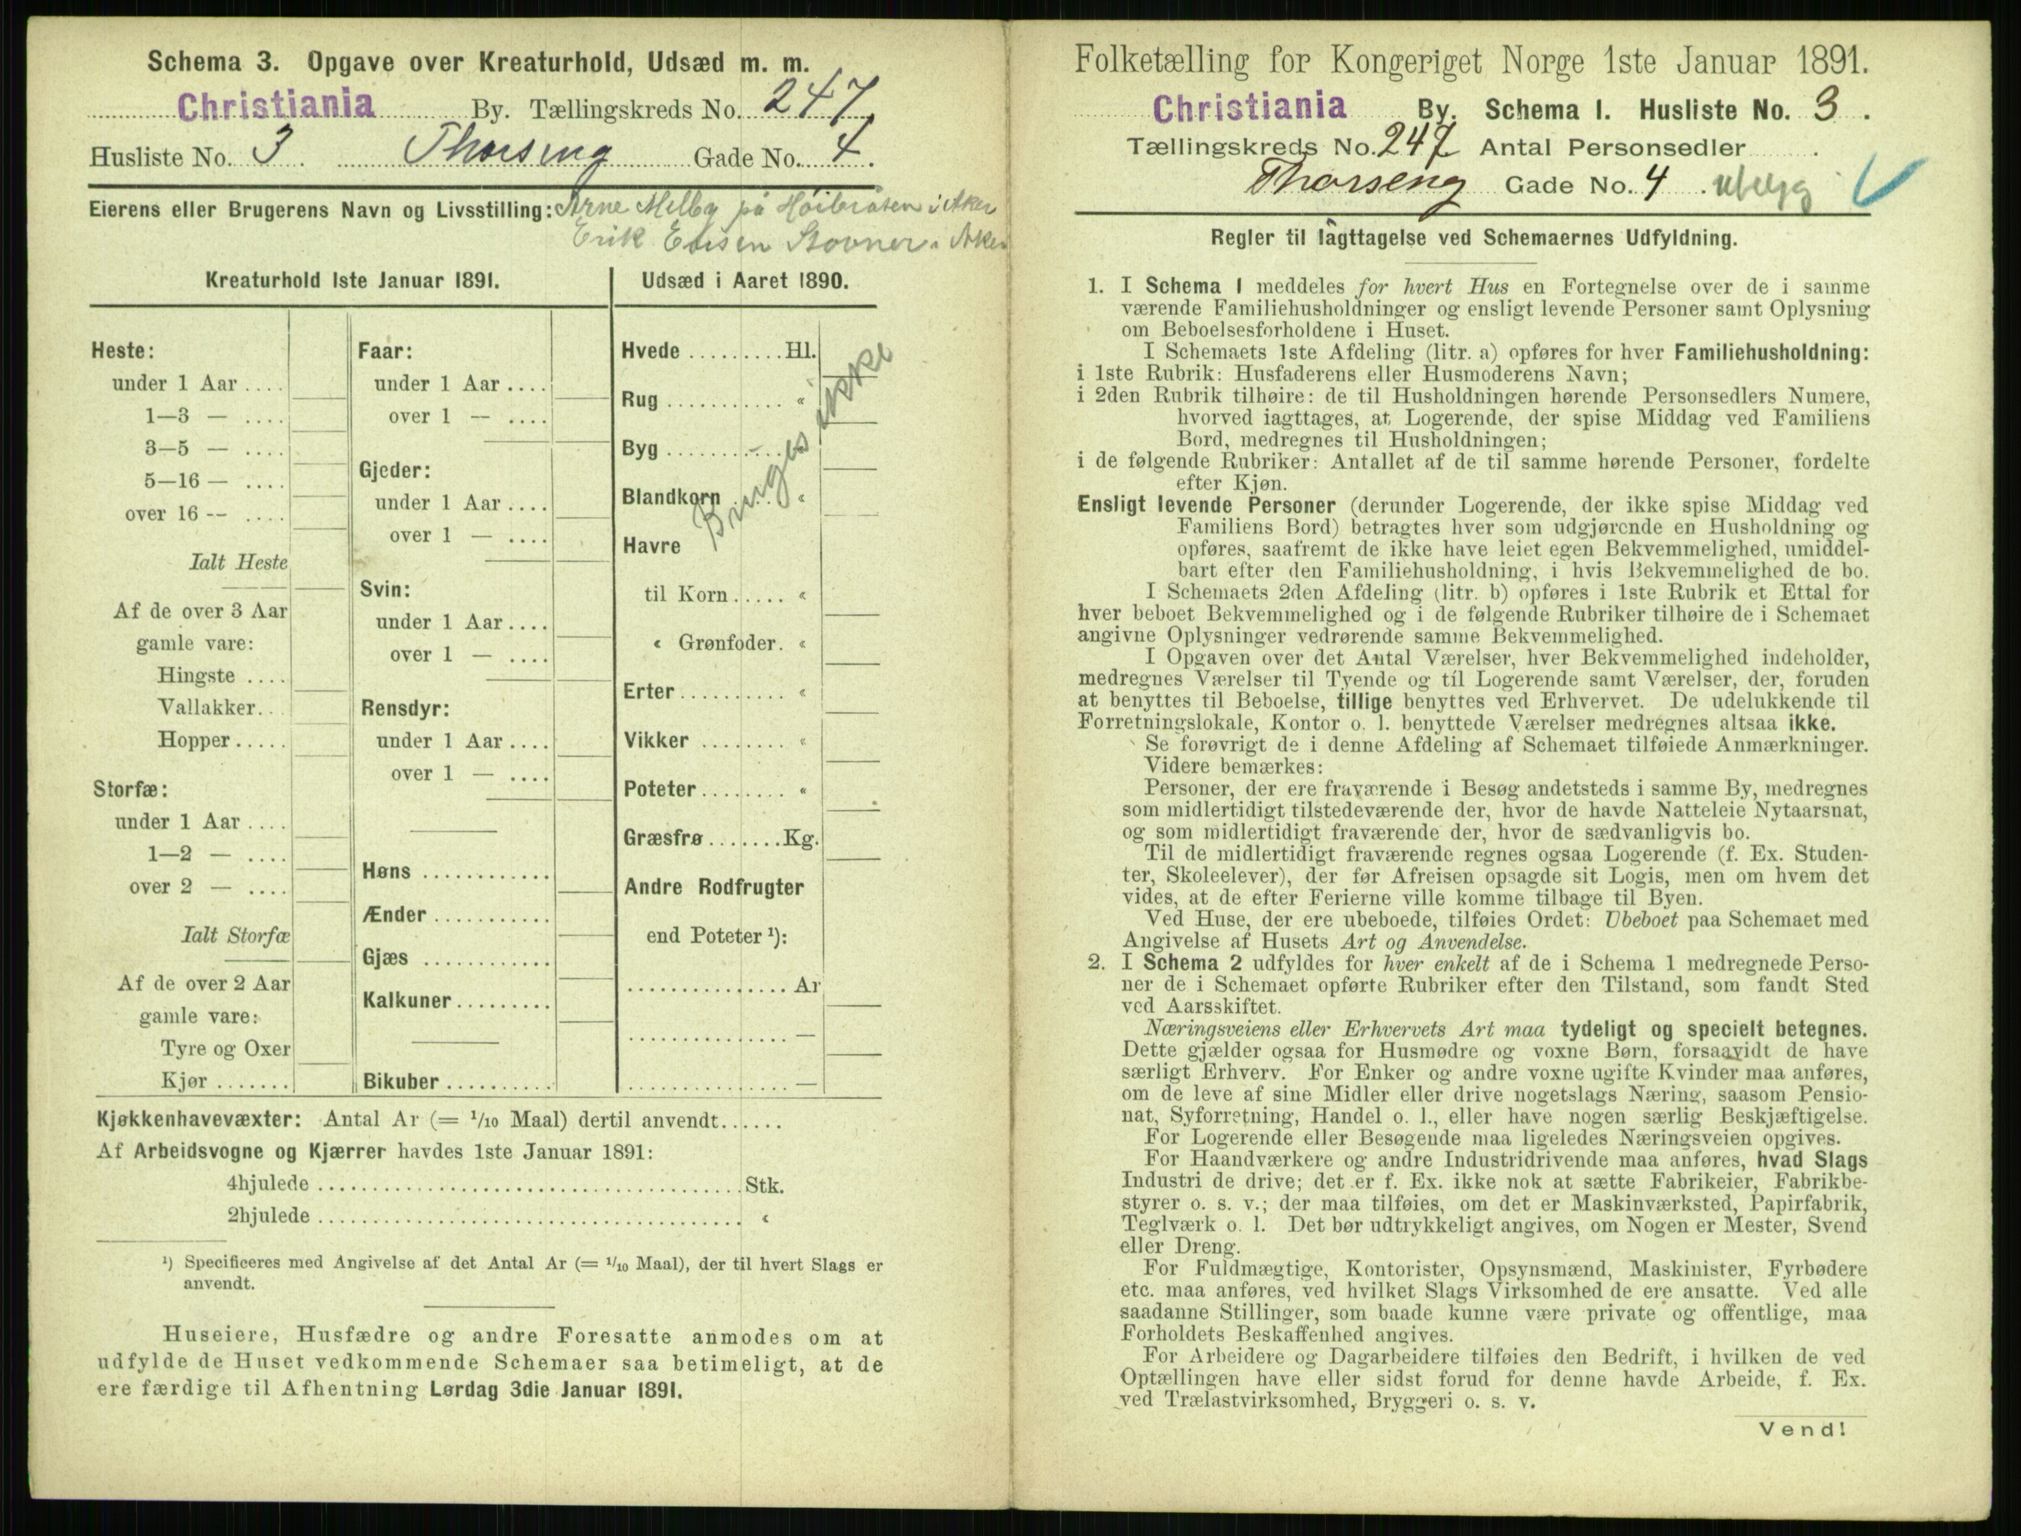 Schema 3. Opgave over Kreaturhold, Udsæd m. m.
Christiania By. Tællingskreds No. 247
Husliste No. 3. Thorseng Gade No. 4.
Eierens eller Brugerens Navn og Livsstilling: Arne Melby på Høibråten i Aker
Erik Stovner i Aker
Kreaturhold 1ste Januar 1891.
Heste:
under 1 Aar ....
1—3 — ....
3—5 — ....
5—16 — ....
over 16 -- ....
Ialt Heste
Af de over 3 Aar
gamle vare:
Hingste ....
Vallakker..
Hopper.....
Storfæ:
under 1 Aar ....
1—2 — ....
over 2 — ....
Ialt Storfæ
Af de over 2 Aar
gamle vare:
Tyre og Oxer
Kjør .......
Faar:
under 1 Aar ....
over 1 — ....
Gjeder:
under 1 Aar ....
over 1 — ....
Svin:
under 1 Aar ....
over 1 — ....
Rensdyr:
under 1 Aar ....
over 1 — ....
Høns ............
Ænder ...........
Gjæs ............
Kalkuner.........
Bikuber ..........
Udsæd i Aaret 1890.
Hvede .........Hl.
Rug ........... «
Byg ........... «
Blandkorn ..... «
Havre
til Korn..... «
« Grønfoder. «
Erter.......... «
Vikker ........ «
Poteter........ «
Græsfrø .......Kg.
Andre Rodfrugter
end Poteter ¹):
............... Ar
............... —
............... —
Bruges ikke
Kjøkkenhavevæxter: Antal Ar (= 1/10 Maal) dertil anvendt......
Af Arbeidsvogne og Kjærrer havdes 1ste Januar 1891:
4hjulede ........................................Stk.
2hjulede ........................................ «
¹) Specificeres med Angivelse af det Antal Ar (= 1/10 Maal), der til hvert Slags er
anvendt.
Huseiere, Husfædre og andre Foresatte anmodes om at
udfylde de Huset vedkommende Schemaer saa betimeligt, at de
ere færdige til Afhentning Lørdag 3die Januar 1891.
Folketælling for Kongeriget Norge 1ste Januar 1891.
Christiania By. Schema I. Husliste No. 3.
Tællingskreds No. 247 Antal Personsedler .
Thorseng Gade No. 4. ubygg
Regler til Iagttagelse ved Schemaernes Udfyldning.
1. I Schema I meddeles for hvert Hus en Fortegnelse over de i samme
værende Familiehusholdninger og ensligt levende Personer samt Oplysning
om Beboelsesforholdene i Huset.
I Schemaets 1ste Afdeling (litr. a) opføres for hver Familiehusholdning:
i 1ste Rubrik: Husfaderens eller Husmoderens Navn;
i 2den Rubrik tilhøire: de til Husholdningen hørende Personsedlers Numere,
hvorved iagttages, at Logerende, der spise Middag ved Familiens
Bord, medregnes til Husholdningen;
i de følgende Rubriker: Antallet af de til samme hørende Personer, fordelte
efter Kjøn.
Ensligt levende Personer (derunder Logerende, der ikke spise Middag ved
Familiens Bord) betragtes hver som udgjørende en Husholdning og
opføres, saafremt de ikke have leiet egen Bekvemmelighed, umiddel-
bart efter den Familiehusholdning, i hvis Bekvemmelighed de bo.
I Schemaets 2den Afdeling (litr. b) opføres i 1ste Rubrik et Ettal for
hver beboet Bekvemmelighed og i de følgende Rubriker tilhøire de i Schemaet
angivne Oplysninger vedrørende samme Bekvemmelighed.
I Opgaven over det Antal Værelser, hver Bekvemmelighed indeholder,
medregnes Værelser til Tyende og til Logerende samt Værelser, der, foruden
at benyttes til Beboelse, tillige benyttes ved Erhvervet. De udelukkende til
Forretningslokale, Kontor o. l. benyttede Værelser medregnes altsaa ikke.
Se forøvrigt de i denne Afdeling af Schemaet tilføiede Anmærkninger.
Videre bemærkes:
Personer, der ere fraværende i Besøg andetsteds i samme By, medregnes
som midlertidigt tilstedeværende der, hvor de havde Natteleie Nytaarsnat,
og som midlertidigt fraværende der, hvor de sædvanligvis bo.
Til de midlertidigt fraværende regnes ogsaa Logerende (f. Ex. Studen-
ter, Skoleelever), der før Afreisen opsagde sit Logis, men om hvem det
vides, at de efter Ferierne ville komme tilbage til Byen.
Ved Huse, der ere ubeboede, tilføies Ordet: Ubeboet paa Schemaet med
Angivelse af Husets Art og Anvendelse.
2. I Schema 2 udfyldes for hver enkelt af de i Schema 1 medregnede Perso-
ner de i Schemaet opførte Rubriker efter den Tilstand, som fandt Sted
ved Aarsskiftet.
Næringsveiens eller Erhvervets Art maa tydeligt og specielt betegnes.
Dette gjælder ogsaa for Husmødre og voxne Børn, forsaavidt de have
særligt Erhverv. For Enker og andre voxne ugifte Kvinder maa anføres,
om de leve af sine Midler eller drive nogetslags Næring, saasom Pensio-
nat, Syforretning, Handel o. l., eller have nogen særlig Beskjæftigelse.
For Logerende eller Besøgende maa ligeledes Næringsveien opgives.
For Haandværkere og andre Industridrivende maa anføres, hvad Slags
Industri de drive; det er f. Ex. ikke nok at sætte Fabrikeier, Fabrikbe-
styrer o. s. v.; der maa tilføies, om det er Maskinværksted, Papirfabrik,
Teglværk o. l. Det bør udtrykkeligt angives, om Nogen er Mester, Svend
eller Dreng.
For Fuldmægtige, Kontorister, Opsynsmænd, Maskinister, Fyrbødere
etc. maa anføres, ved hvilket Slags Virksomhed de ere ansatte. Ved alle
saadanne Stillinger, som baade kunne være private og offentlige, maa
Forholdets Beskaffenhed angives.
For Arbeidere og Dagarbeidere tilføies den Bedrift, i hvilken de ved
Optællingen have eller sidst forud for denne havde Arbeide, f. Ex.
ved Trælastvirksomhed, Bryggeri o. s. v.
Vend!